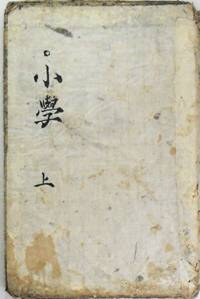 小學
上